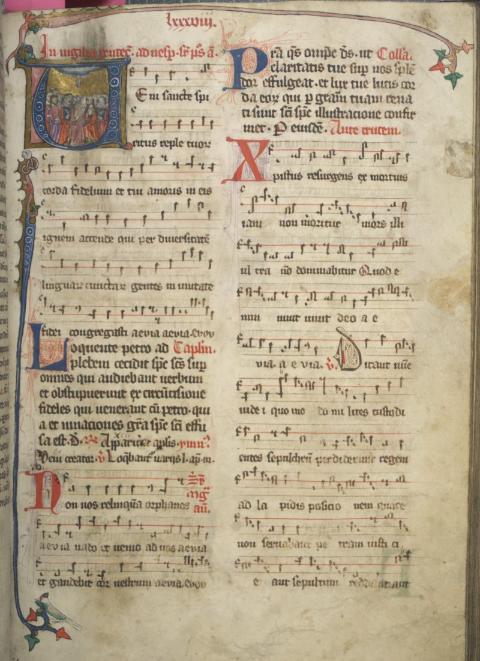 lxxxviii.
In vigilia pentec. ad vesp. sr ps a
Veni sancte spi
ritus reple tuor
corda fidelium et tui amoris in eis
ignem accende qui per diversitatē
linguar cunctar gentes in unitate
fidei congregasti aevia aevia. evov
Loquente petro ad Caplm.
plebem cecidit spc scs sup
omnes qui audiebant verbum
et obstupuerunt ex circūcisione
fideles qui venerant cū petro. qui
a et in nationes gra spc sci effu
sa est. Apparuer aplis.
Veni creator. Loqbant variis l. ap. m.
Non vos relinquā orphanos
aevia vado et venio ad vos aevia
et gaudebit cor vestrum aevia. evov
Pra qs omps ds. ut Colla.
claritatis tue sup nos splē
dor effulgeat. et lux tue lucis cor
da eor qui p gram tuam rena
ti sunt sci spc illustratione confir
met. P eiusdē. Ante crucem.
Xpistus resurgens ex mortuis
iam non moritur mors illi
ul tra nō dominabitur Quod e
nim vivit vivit deo a e
via. a e via. Dicant nūc
iude i quo mo do mi lites custodi
entes sepulchrū perdiderunt regem
ad la pidis positio nem quare
non servabant pe tram iusti ci
e aut sepultum reddant aut